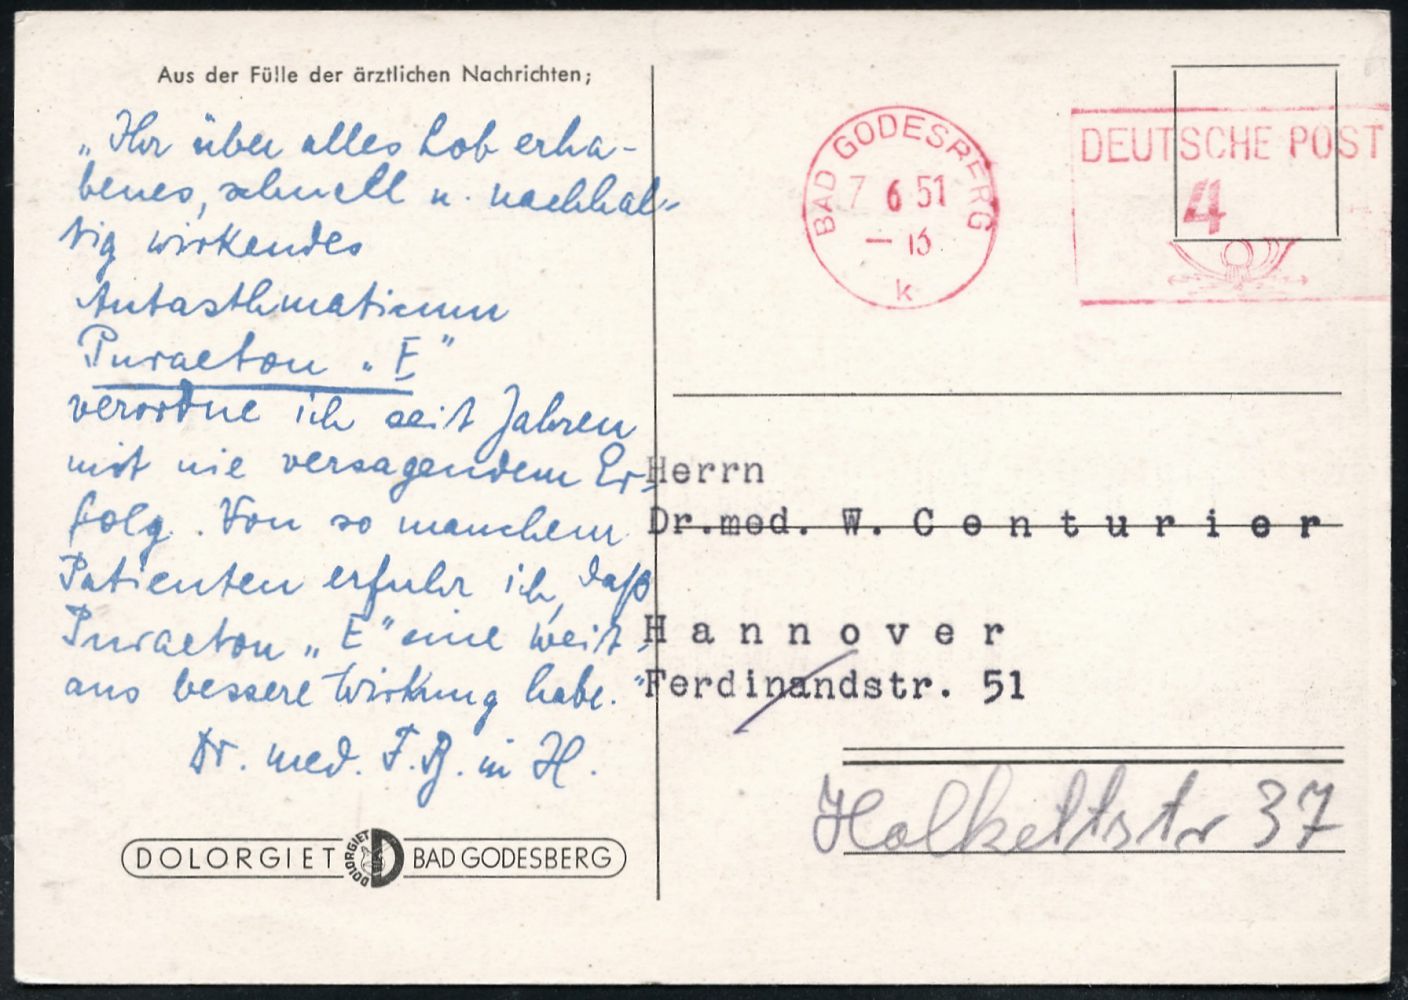 Aus der Fülle der ärztlichen Nachrichten;
„Ihr über alles Lob erha-
benes, schnell u. nachhal-
tig wirkendes
Antasthmaticum
Puraeton „E"
verordne ich seit Jahren
mit nie versagendem Er-
folg. Von so manchem
Patienten erfuhr ich, daß
Puraeton „E" eine weit-
aus bessere Wirkung habe."
Dr. med. F. B. in H.
DOLORGIET DOLORGIET BAD GODESBERG
BAD GODESBERG
7 6 51
- 13
k
DEUTSCHE POST
4
Herrn
Dr.med. W. Centurier
Hannover
Ferdinandstr. 51
Holkettstr 37